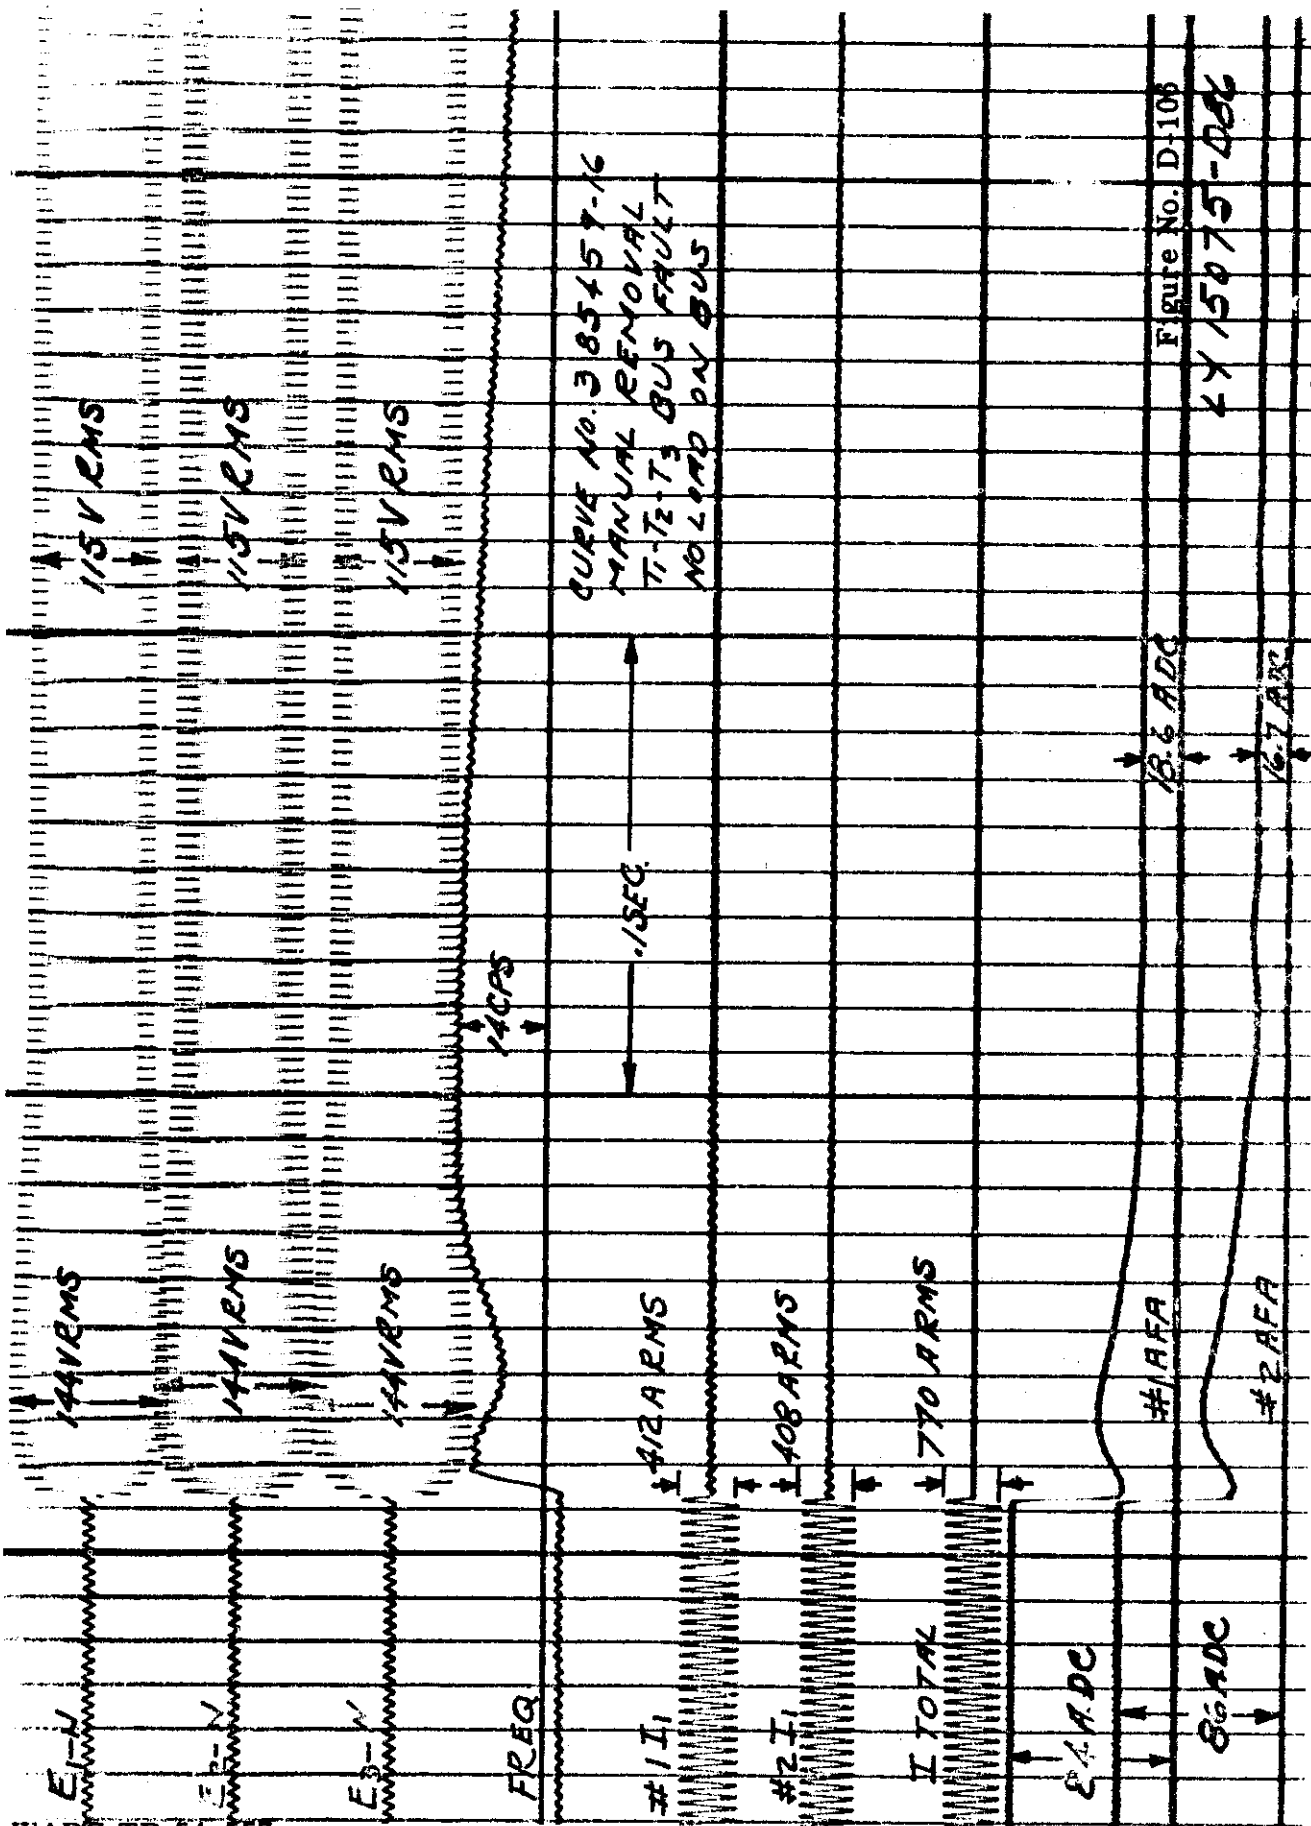 E1-N
144V RMS
115V RMS
E2-N
144V RMS
115V RMS
E3-N
144V RMS
115V RMS
FREQ
14 CPS
.1 SEC.
CURVE No. 385457-16
MANUAL REMOVAL
T1-T2-T3 BUS FAULT
NO LOAD ON BUS
#1 I1
412 A RMS
#2 I1
408 A RMS
I TOTAL
770 A RMS
84 ADC
#1 AFA
18.6 ADC
86 ADC
#2 AFA
16.7 ADC
Figure No. D-106
LY 15075-D86